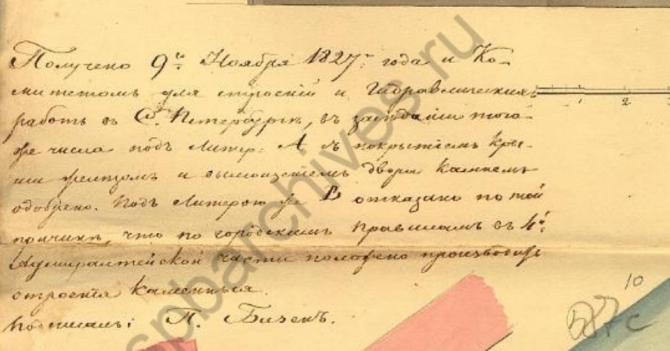 Получено 9го Ноября 1827го года и Ко-
митетомъ для строений и Гидравлическихъ
работъ въ С. Петербургѣ, въ заседании того
же числа подъ Литер: А съ покрытиемъ кры-
ши железомъ и вымощениемъ двора камнемъ
одобрено. Подъ Литерою же В отказано по той
причинѣ, что по городскимъ правиламъ въ 4й
Адмиралтейской части положено производить
строения каменныя.
Подписалъ: П. Базенъ.
1 2
10
spbarchives.ru